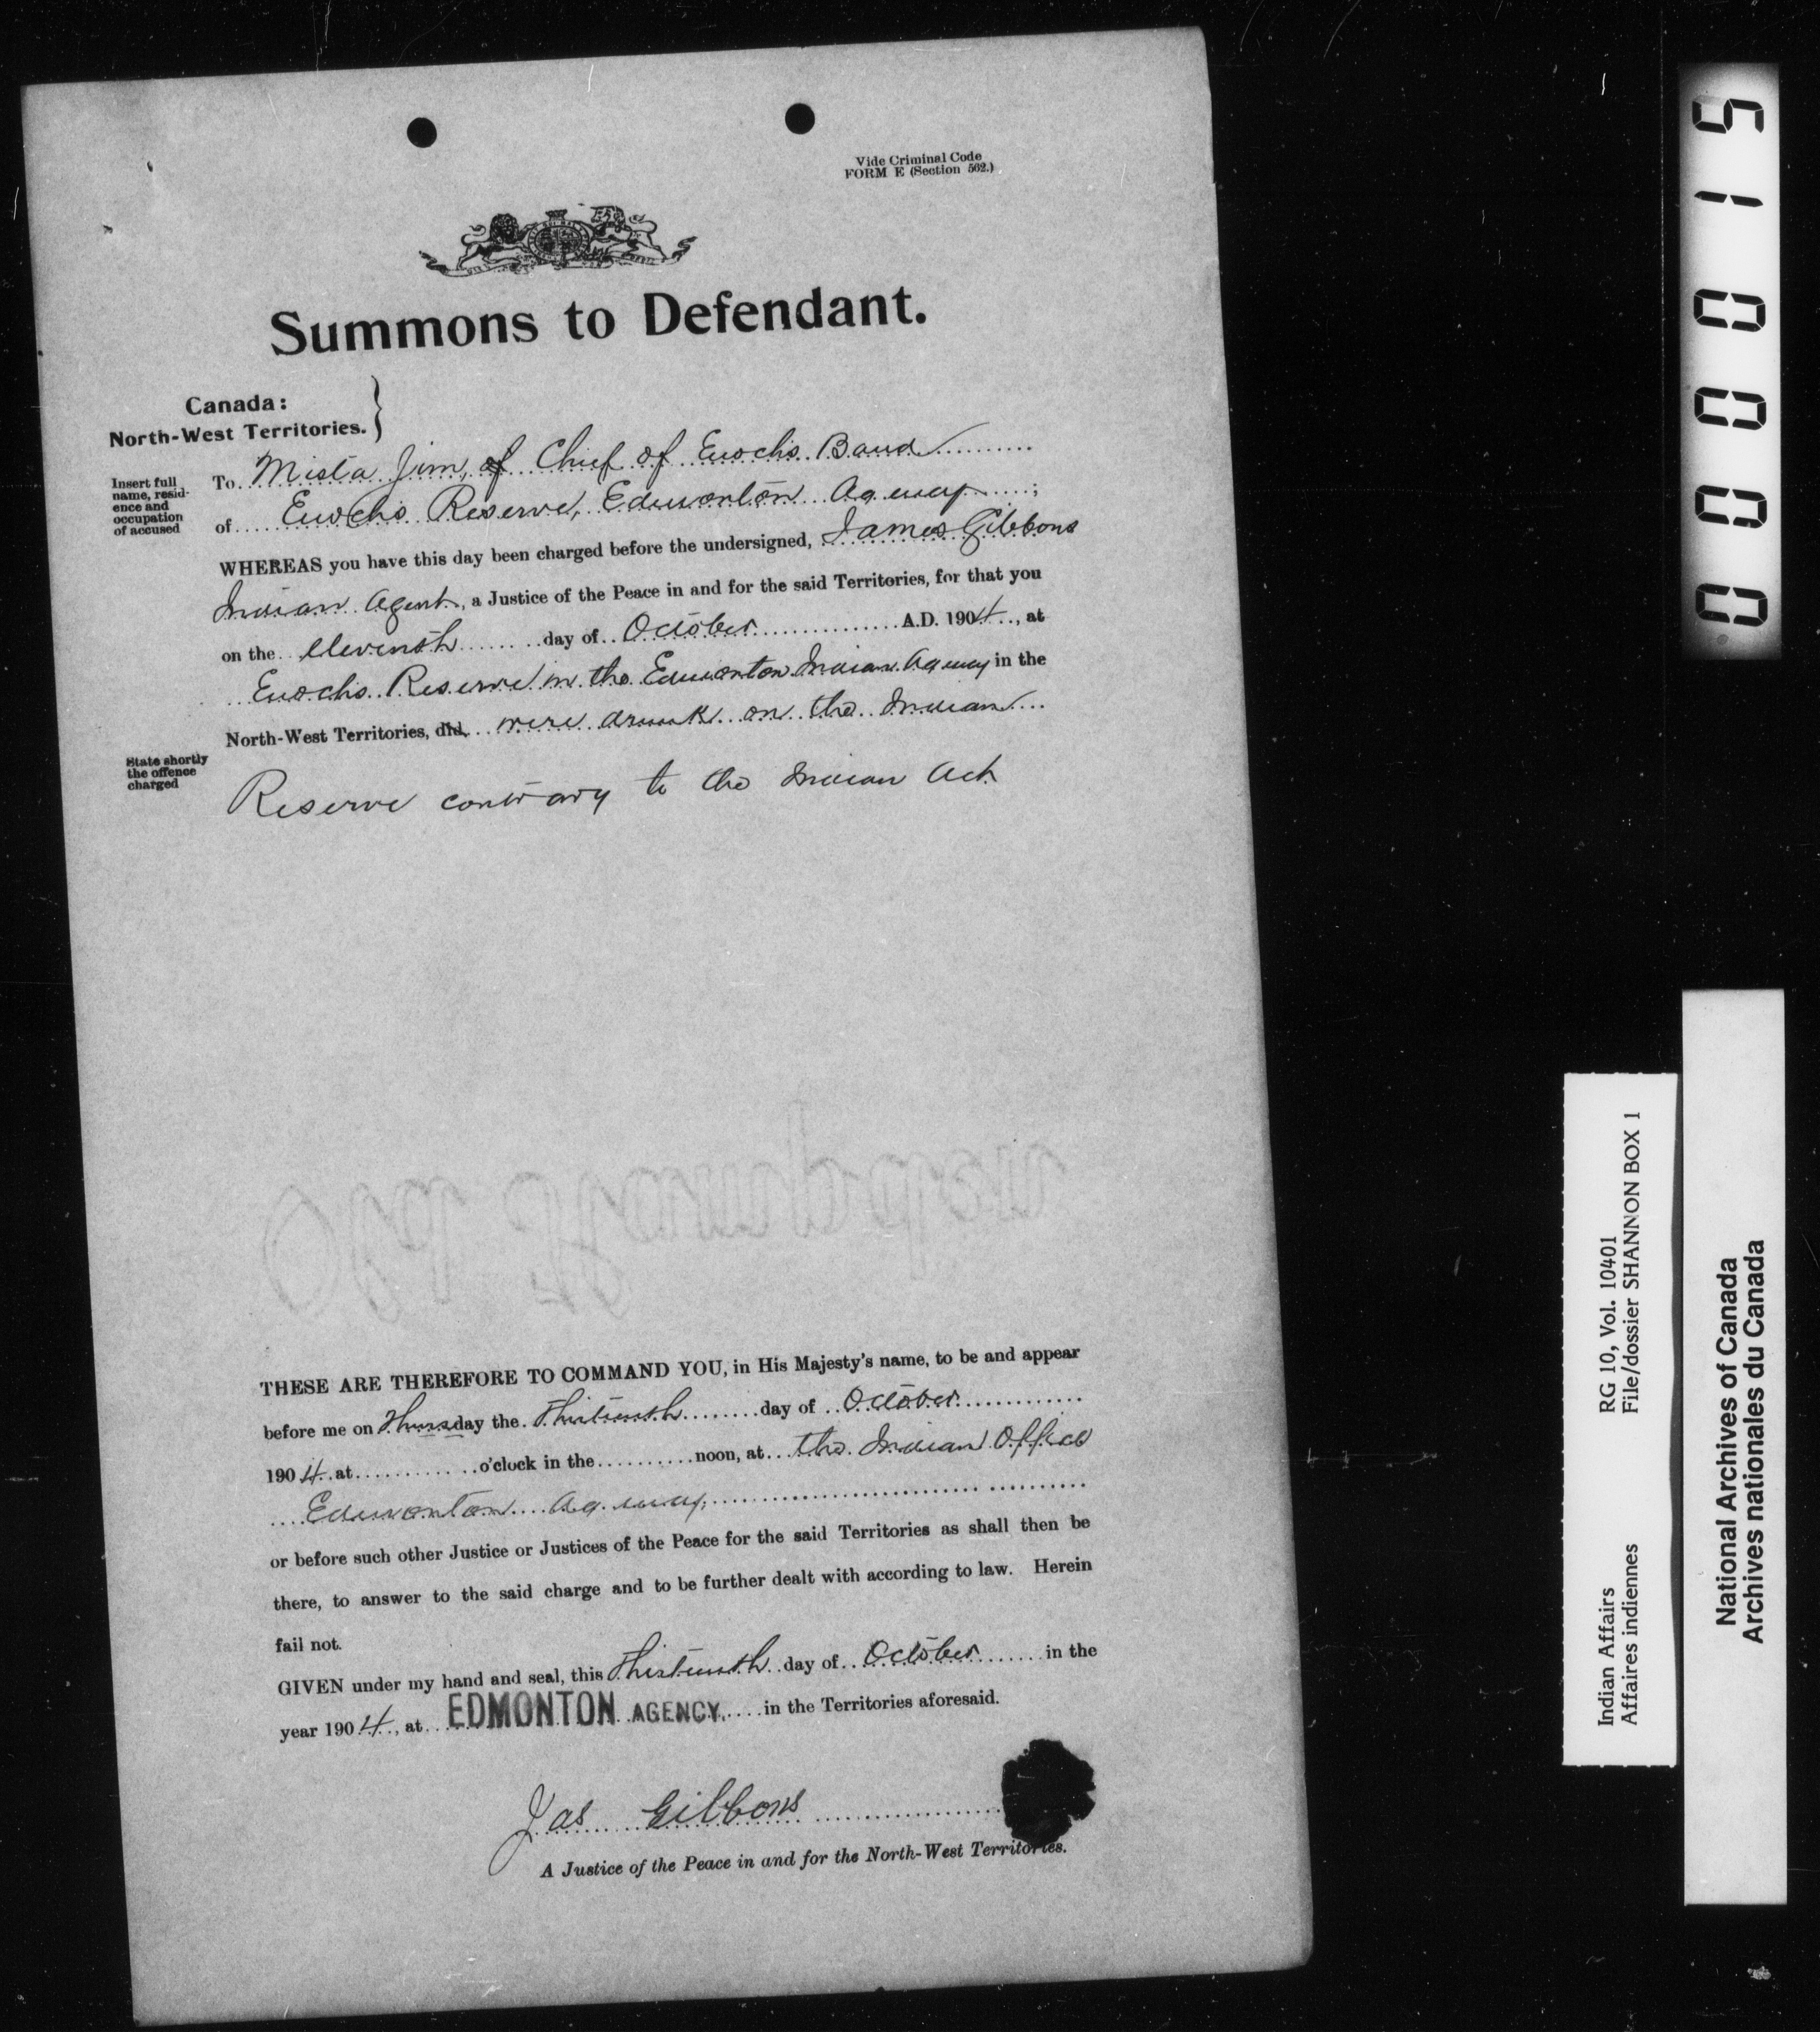 Vide Criminal Code
FORM E (Section 562.)
Summons to Defendant.
Canada:
North-West Territories.
Insert full
name, resid-
ence and
occupation
of accused
To Mista Jim, of Chief of Enochs Band
of Enochs Reserve, Edmonton Agency ;
WHEREAS you have this day been charged before the undersigned, James Gibbons
Indian Agent, a Justice of the Peace in and for the said Territories, for that you
on the Eleventh day of October A.D. 1904, at
Enochs Reserve in the Edmonton Indian Agency in the
North-West Territories, did, were drunk on the Indian
State shortly
the offence
charged
Reserve contrary to the Indian Act
THESE ARE THEREFORE TO COMMAND YOU, in His Majesty's name, to be and appear
before me on Thursday the Thirteenth day of October
1904 at o'clock in the noon, at the Indian Office
Edmonton Agency
or before such other Justice or Justices of the Peace for the said Territories as shall then be
there, to answer to the said charge and to be further dealt with according to law. Herein
fail not.
GIVEN under my hand and seal, this Thirteenth day of October in the
year 1904, at EDMONTON AGENCY, in the Territories aforesaid.
Jas Gibbons
A Justice of the Peace in and for the North-West Territories.
000015
Indian Affairs RG 10, Vol. 10401
Affaires indiennes File/dossier SHANNON BOX 1
National Archives of Canada
Archives nationales du Canada